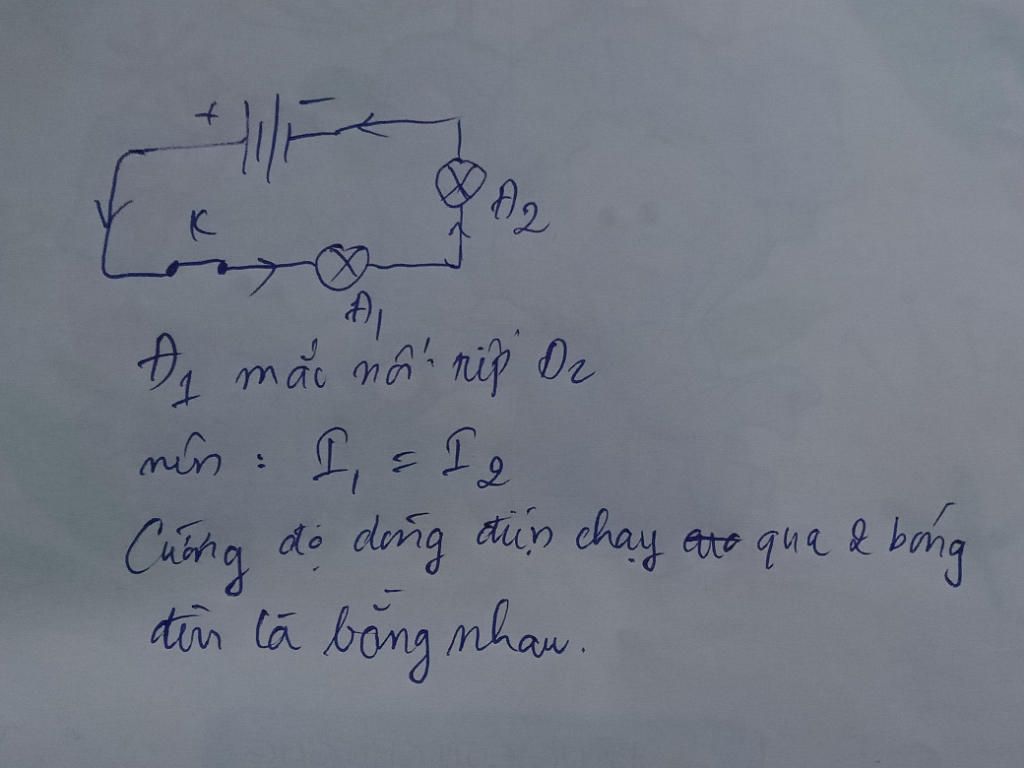 + −
K
Đ2
Đ1
Đ1 mắc nối tiếp Đ2
nên : I1 = I2
Cường độ dòng điện chạy qua 2 bóng
đèn là bằng nhau.